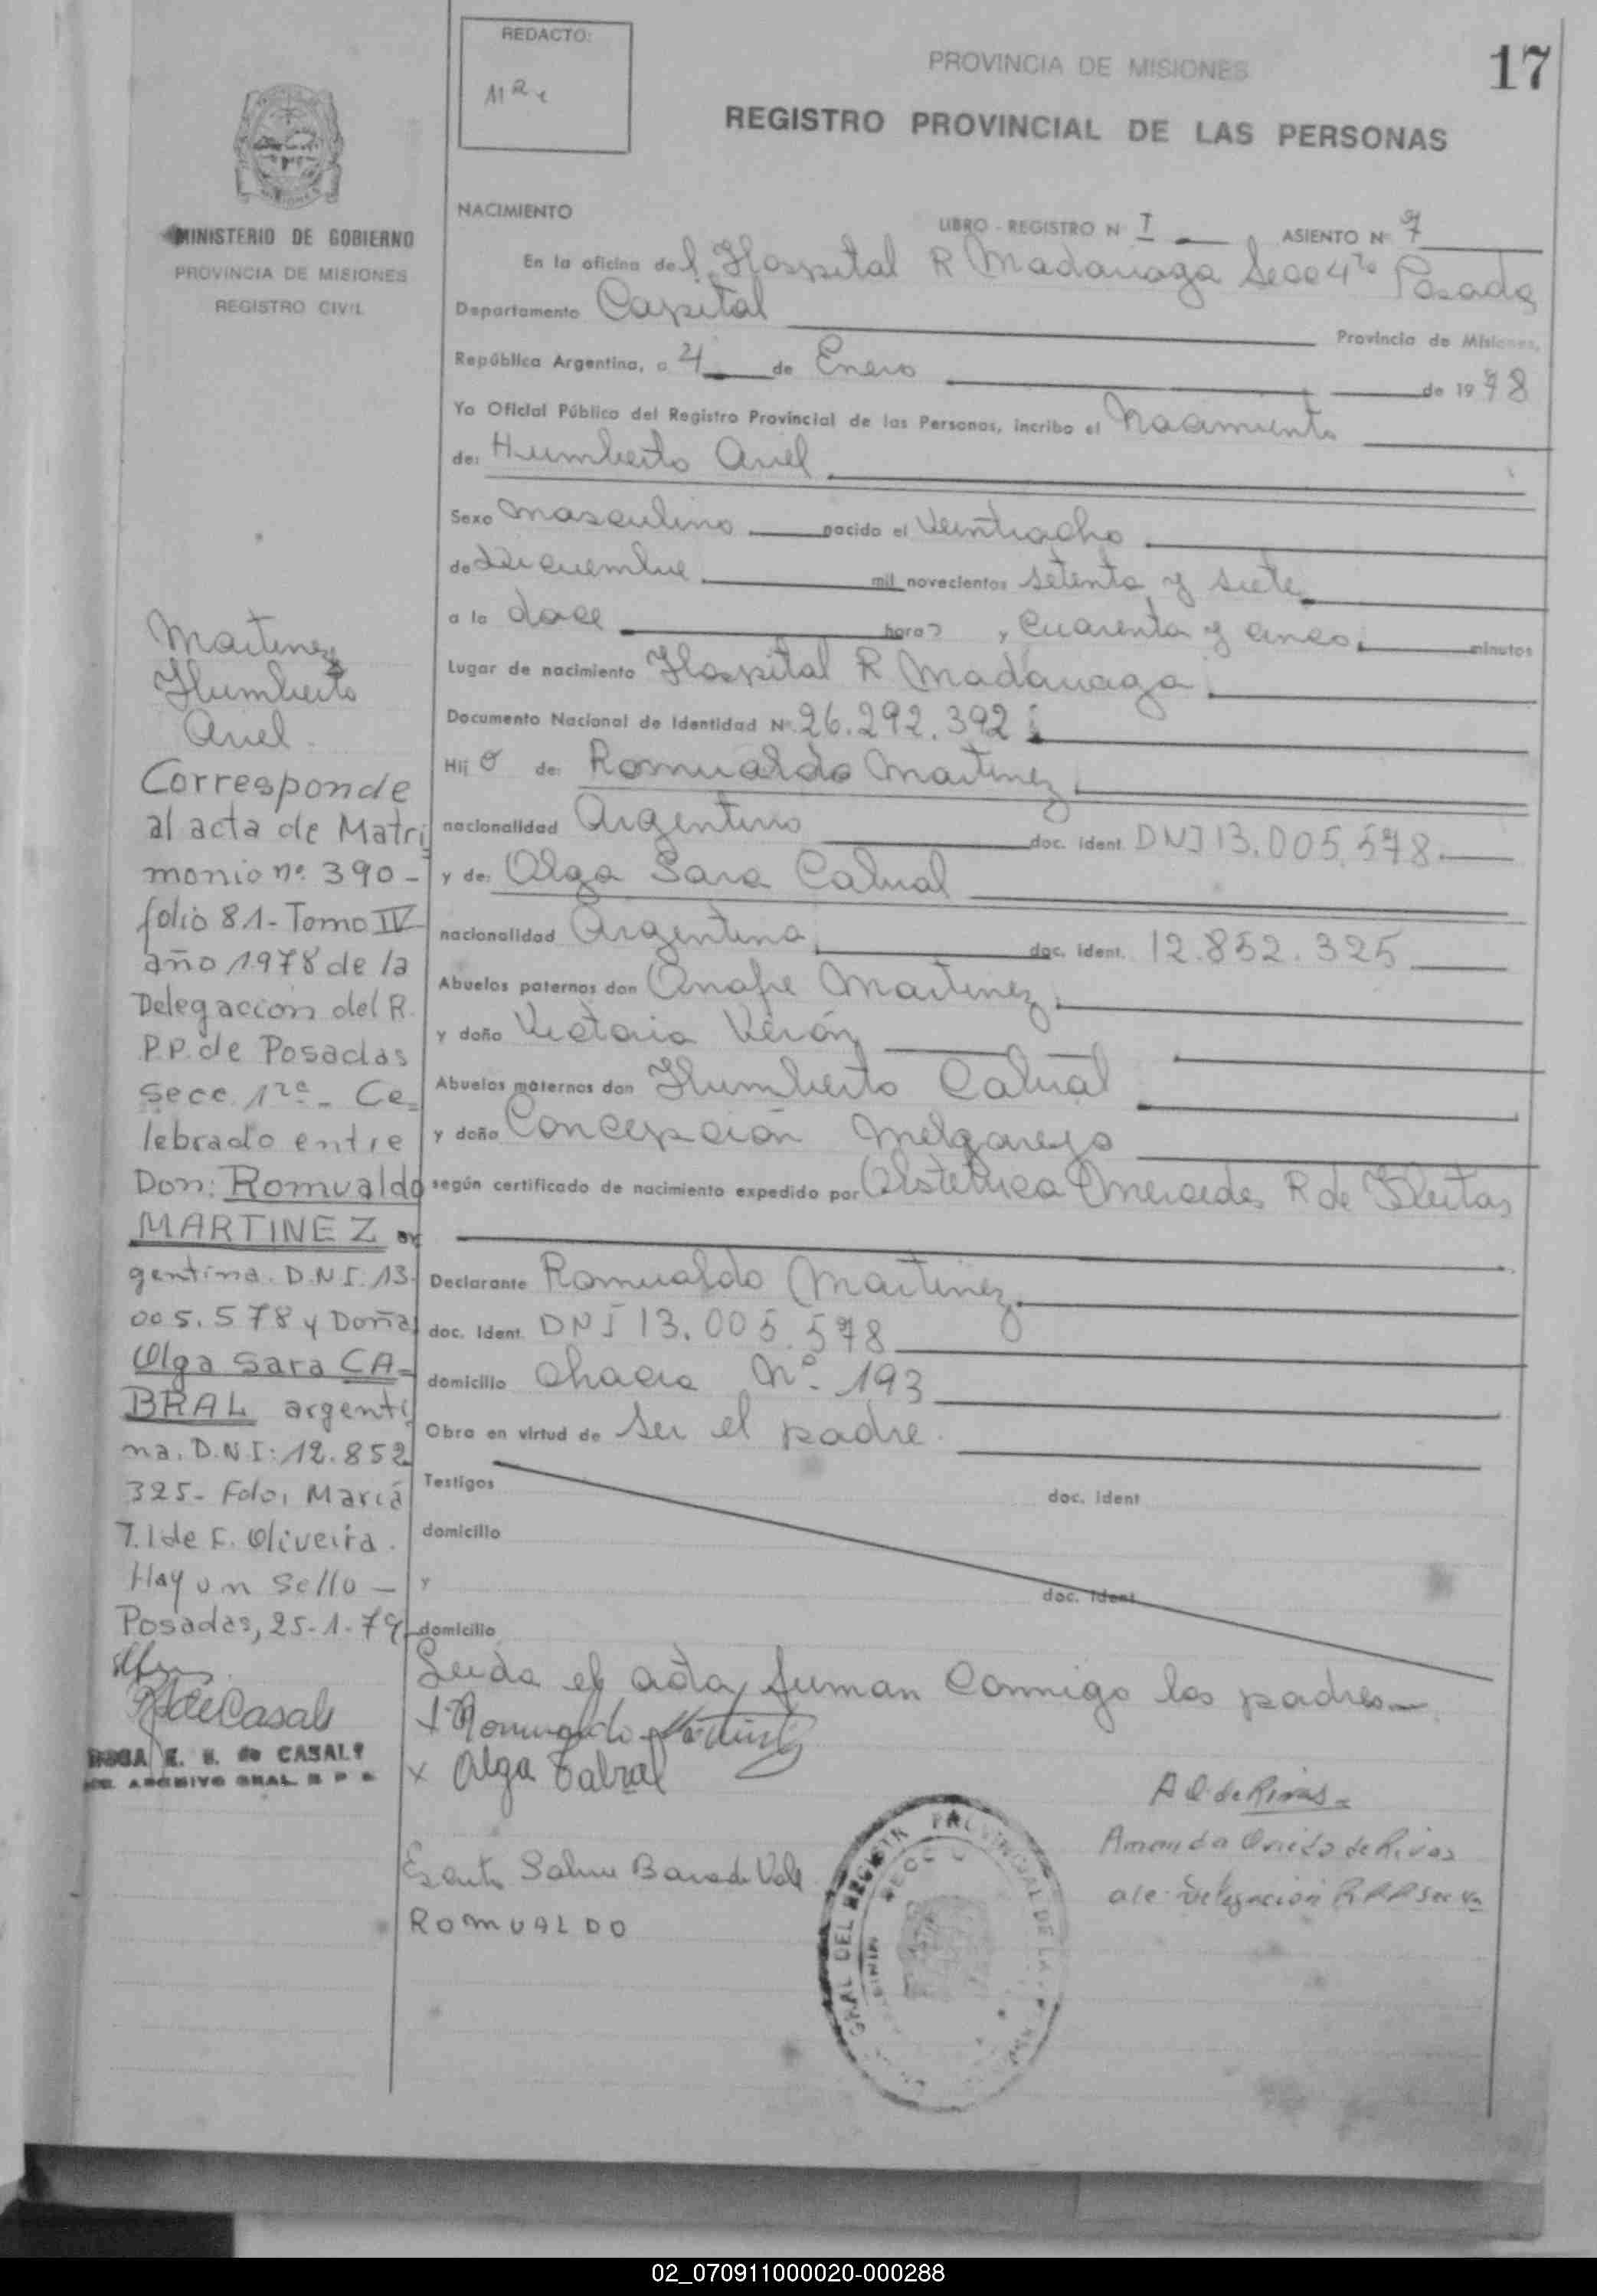 REDACTO:
PROVINCIA DE MISIONES
17
REGISTRO PROVINCIAL DE LAS PERSONAS
MINISTERIO DE GOBIERNO
PROVINCIA DE MISIONES
REGISTRO CIVIL
NACIMIENTO
LIBRO - REGISTRO N I ASIENTO Nº 7
En la oficina del Hospital R Madariaga Secc 4ta Posadas
Departamento Capital Provincia de Misiones,
República Argentina, a 4 de Enero de 1978
Yo Oficial Público del Registro Provincial de las Personas, incribo el Nacimiento
de: Humberto Ariel
Sexo masculino nacido el Veintiocho
de Diciembre mil novecientos setenta y siete
a la doce horas y cuarenta y cinco minutos
Lugar de nacimiento Hospital R Madariaga
Documento Nacional de Identidad Nº 26.292.392
Hij o de: Romualdo Martinez
nacionalidad Argentino doc. ident. DNI 13.005.578.
y de: Olga Sara Cabral
nacionalidad Argentina doc. ident. 12.852.325
Abuelos paternos don Onofre Martinez
y doña Victoria Verón
Abuelos maternos don Humberto Cabral
y doña Concepción Melgarejo
según certificado de nacimiento expedido por Obstetrica Mercedes R de Fleitas
Declarante Romualdo Martinez
doc. Ident. DNI 13.005.578
domicilio Chacra Nº 193
Obra en virtud de ser el padre.
Testigos doc. ident
domicilio
y doc. ident
domicilio
Leida el acta, firman conmigo los padres
x Romualdo Martinez
x Olga Cabral
ROMUALDO
A O. de Rivas
Amanda Oviedo de Rivas
a/c Delegacion R.P.P Sec 4ta
Martinez
Humberto
Ariel.
Corresponde
al acta de Matri
monio nº 390-
folio 81- Tomo IV
año 1978 de la
Delegación del R.
P.P. de Posadas
secc. 1ra - Ce
lebrado entre
Don: Romualdo
MARTINEZ ar
gentino. D.N.I. 13.
005.578 y Doña
Olga Sara CA-
BRAL argenti
na. D.N.I: 12.852
325- Fdo: María
T. I de F. Oliveira.
Hay un sello -
Posadas, 25-1-79
R de Casals
E. R. de CASALS
ARCHIVO GRAL. R P P
GRAL DEL REGISTR PROVINCIAL DE LA
02_070911000020-000288